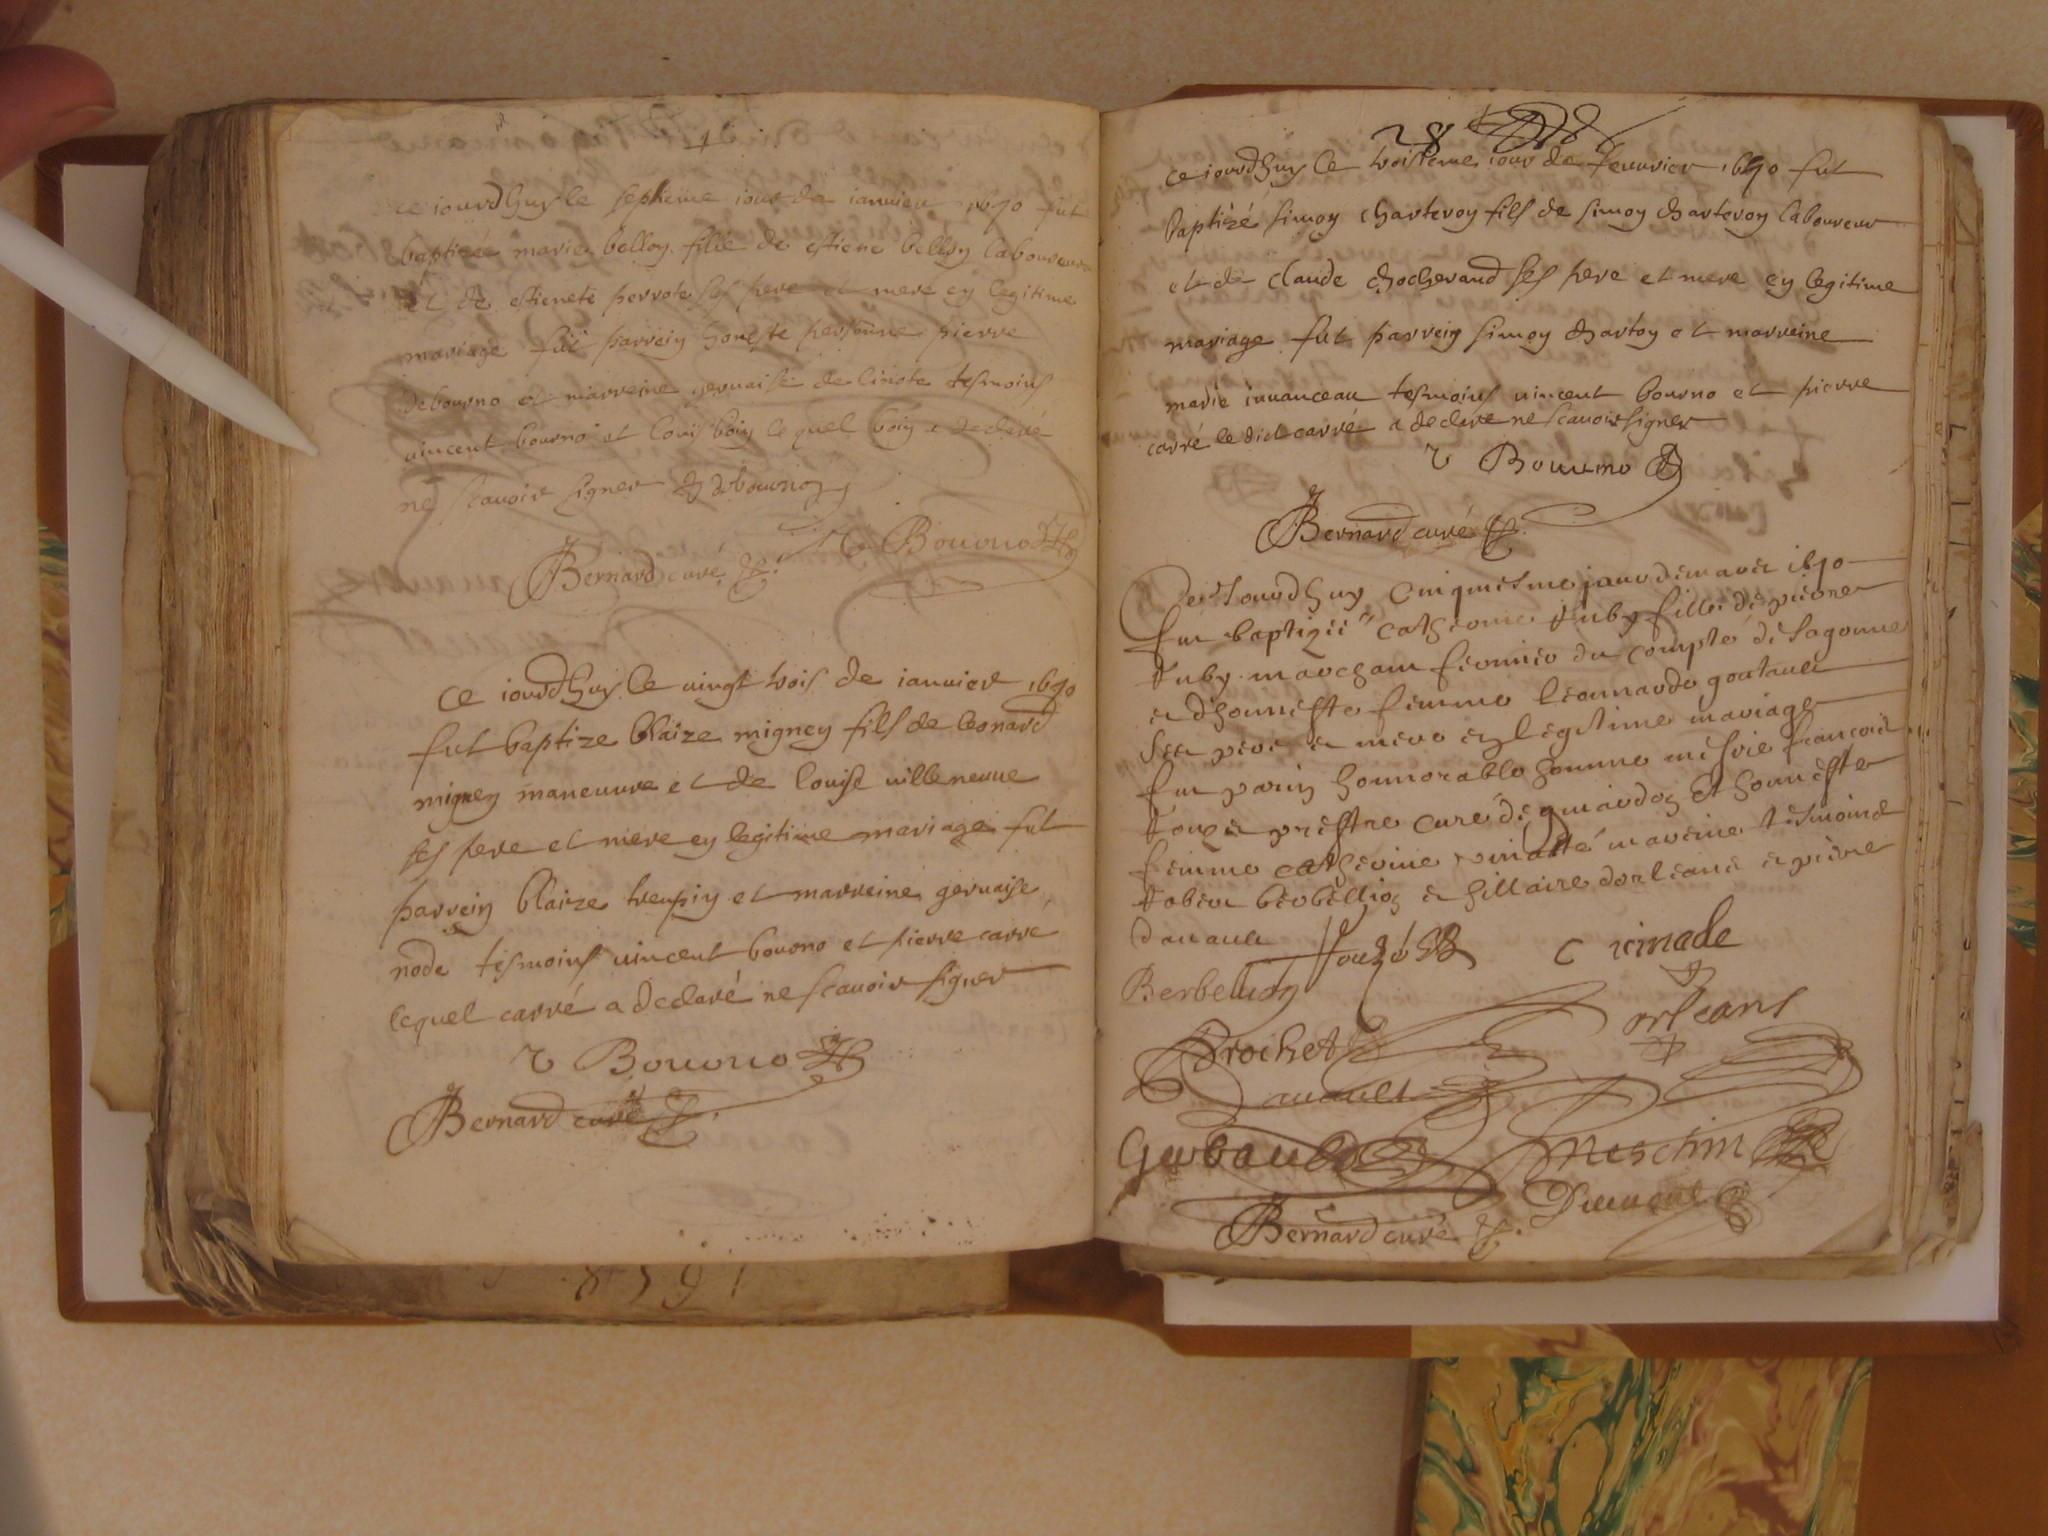 ce iourdhuy le septieme iour de ianuier 1690 fut
baptizée marie belloy fille de estiene belloy laboureur
et de estienete perrote ses pere et mere en legitime
mariage fut parrein honeste personne pierre
debourno et marreine geruaise de linote tesmoins
uincent bourno et louis boin lequel boin a declaré
ne scauoir signer debourno
V Bourno
Bernard curé
ce iourdhuy le uingt trois de ianuier 1690
fut baptize blaize migney fils de leonard
migney maneuure et de louise uilleneuue
ses pere et mere en legitime mariage fut
parrein blaize trempin et marreine geruaise
node tesmoins uincent bourno et pierre carré
lequel carré a declaré ne scauoir signer
V Bourno
Bernard curé
28
ce iourdhuy le troisieme iour de feuurier 1690 fut
baptizé simon charteron fils de simon charteron laboureur
et de claude chocherand ses pere et mere en legitime
mariage fut parrein simon charton et marreine
marie iuuanceau tesmoins uincent bourno et pierre
carré le dict carré a declare ne scauoir signer
V Bourno
Bernard curé
Ce Iourdhuy Cinquiesme jour de mars 1690
fut baptizée catherine fille de pierre
marchant fermier du compté de Sagonne
et d'honneste femme leonnarde
ses pere et mere en legitime mariage
fut parin honnorable homme mesire francois
prestre curé de et honneste
femme catherine pinatte mareine tesmoins
berbellion et hillaire dorleans et pierre
danault
C pinade
Berbellion
orleans
Brochet
danault
Garbault
Meschin
Dumont
Bernard curé
1651